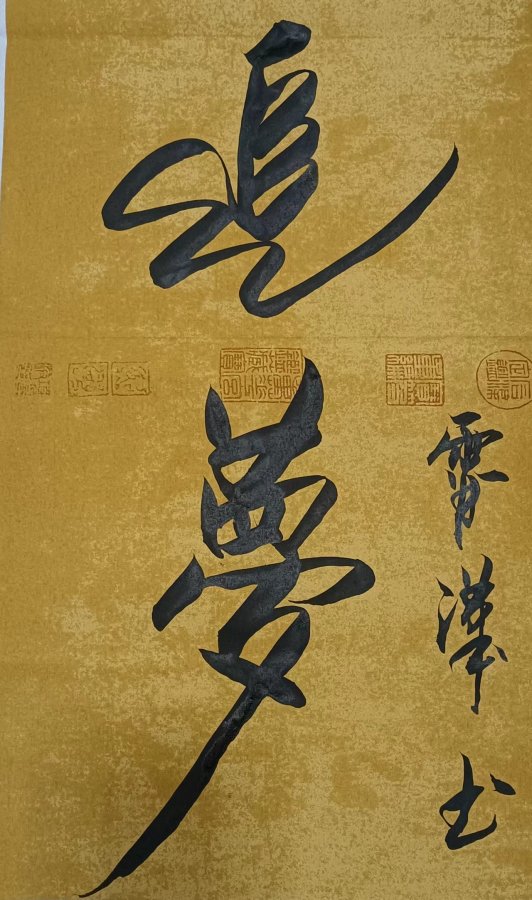 追
夢
霄漢书